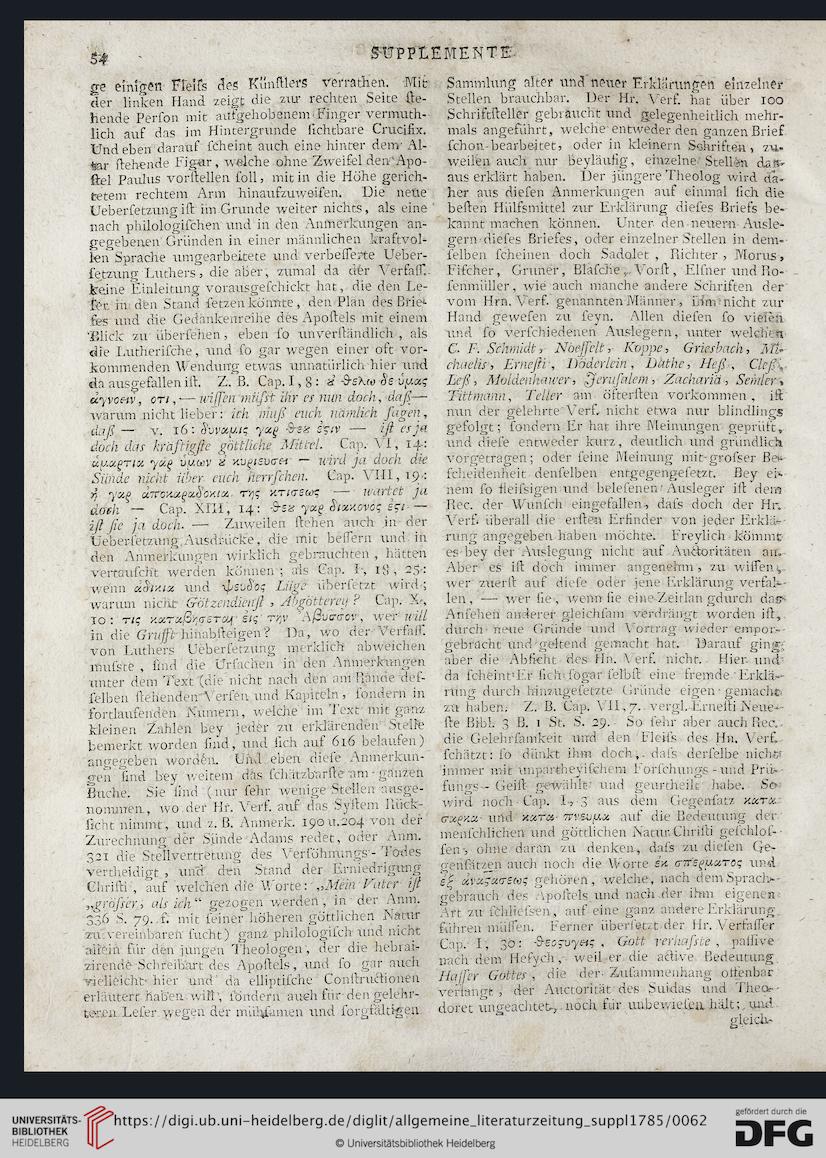 54
SUPPLEMENTE.
ge einigen Fleiſs des Künſtlers verrathen. Mit
der linken Hand zeigt die zur rechten Seite ſte-
hende Perſon mit aufgehobenem Finger vermuth-
lich auf das im Hintergrunde ſichtbare Crucifix.
Und eben darauf ſcheint auch eine hinter dem Al-
tar ſtehende Figur, welche ohne Zweifel den Apo-
ſtel Paulus vorſtellen ſoll, mit in die Höhe gerich-
tetem rechtem Arm hinaufzuweiſen. Die neue
Ueberſetzung iſt im Grunde weiter nichts, als eine
nach philologiſchen und in den Anmerkungen an-
gegebenen Gründen in einer männlichen kraftvol-
len Sprache umgearbeitete und verbeſſerte Ueber-
ſetzung Luthers, die aber, zumal da der Verfaſſ.
keine Einleitung vorausgeſchickt hat, die den Le-
ſer in den Stand ſetzen könnte, den Plan des Brie-
fes und die Gedankenreihe des Apoſtels mit einem
Blick zu überſehen, eben ſo unverſtändlich, als
die Lutheriſche, und ſo gar wegen einer oft vor-
kommenden Wendung etwas unnatürlich hier und
da ausgefallen iſt. Z. B. Cap. I, 8: ȣ ϑελω δε ὑμας
ἀγνοειν, οτι, — wiſſen müſst ihr es nun doch, daß —
warum nicht lieber: ich muß euch nämlich ſagen,
daß — v. 16: δυναμις γαρ ϑεȣ ἐςιν — iſt es ja
doch das kräftigſte göttliche Mittel. Cap. VI, 14:
ἁμαρτια γὰρ ὑμων ȣ κυριευσει — wird ja doch die
Sünde nicht über euch herrſchen. Cap. VIII, 19:
ἡ γαρ ἀποκαραδοκια της κτισεως — wartet ja
doch — Cap. XIII, 14: ϑεȣ γαρ διακονος ἐςι —
iſt ſie ja doch. — Zuweilen ſtehen auch in der
Ueberſetzung Ausdrücke, die mit beſſern und in
den Anmerkungen wirklich gebrauchten, hätten
vertauſcht werden können; als Cap. I, 18, 25:
wenn ἀδικια und ψευδος Lüge überſetzt wird;
warum nicht Götzendienſt, Abgötterey? Cap. X,
10: τις καταβησεται εἰς την Ἀβυσσον, wer will
in die Gruſſt hinabſteigen? Da, wo der Verfaſſ.
von Luthers Ueberſetzung merklich abweichen
muſste, ſind die Urſachen in den Anmerkungen
unter dem Text (die nicht nach den am Rande deſ-
ſelben ſtehenden Verſen und Kapiteln, ſondern in
fortlaufenden Numern, welche im Text mit ganz
kleinen Zahlen bey jeder zu erklärenden Stelle
bemerkt worden ſind, und ſich auf 616 belaufen)
angegeben worden. Und eben dieſe Anmerkun-
gen ſind bey weitem das ſchätzbarſte am ganzen
Buche. Sie ſind (nur ſehr wenige Stellen ausge-
nommen, wo der Hr. Verf. auf das Syſtem Rück-
ſicht nimmt, und z. B. Anmerk. 190 u. 204 von der
Zurechnung der Sünde Adams redet, oder Anm.
321 die Stellvertretung des Verſöhnungs-Todes
vertheidigt, und den Stand der Erniedrigung
Chriſti, auf welchen die Worte: „Mein Vater iſt
„gröſser, als ich“ gezogen werden, in der Anm.
336 S. 79. f. mit ſeiner höheren göttlichen Natur
zu vereinbaren ſucht) ganz philologiſch und nicht
allein für den jungen Theologen, der die hebrai-
zirende Schreibart des Apoſtels, und ſo gar auch
vielleicht hier und da elliptiſche Conſtructionen
erläutert haben will, ſondern auch für den gelehr-
teren Leſer wegen der mühſamen und ſorgfältigen
Sammlung alter und neuer Erklärungen einzelner
Stellen brauchbar. Der Hr. Verf. hat über 100
Schriftſteller gebraucht und gelegenheitlich mehr-
mals angeführt, welche entweder den ganzen Brief
ſchon bearbeitet, oder in kleinern Schriften, zu-
weilen auch nur beyläufig, einzelne Stellen dar-
aus erklärt haben. Der jüngere Theolog wird da-
her aus dieſen Anmerkungen auf einmal ſich die
beſten Hülfsmittel zur Erklärung dieſes Briefs be-
kannt machen können. Unter den neuern Ausle-
gern dieſes Briefes, oder einzelner Stellen in dem-
ſelben ſcheinen doch Sadolet, Richter, Morus,
Fiſcher, Gruner, Blaſche, Vorſt, Elſner und Ro-
ſenmüller, wie auch manche andere Schriften der
vom Hrn. Verf. genannten Männer, ihm nicht zur
Hand geweſen zu ſeyn. Allen dieſen ſo vielen
und ſo verſchiedenen Auslegern, unter welchen
C. F. Schmidt, Noeſſelt, Koppe, Griesbach, Mi-
chaelis, Erneſti, Döderlein, Dathe, Heß, Cleß,
Leß, Moldenhawer, Jeruſalem, Zachariä, Semler,
Tittmann, Teller am öfterſten vorkommen, iſt
nun der gelehrte Verf. nicht etwa nur blindlings
gefolgt; ſondern Er hat ihre Meinungen geprüft,
und dieſe entweder kurz, deutlich und gründlich
vorgetragen; oder ſeine Meinung mit groſser Be-
ſcheidenheit denſelben entgegengeſetzt. Bey ei-
nem ſo fleiſsigen und beleſenen Ausleger iſt dem
Rec. der Wunſch eingefallen, daſs doch der Hr.
Verf. überall die erſten Erfinder von jeder Erklä-
rung angegeben haben möchte. Freylich kömmt
es bey der Auslegung nicht auf Auctoritäten an.
Aber es iſt doch immer angenehm, zu wiſſen,
wer zuerſt auf dieſe oder jene Erklärung verfal-
len, — wer ſie, wenn ſie eine Zeitlang durch das
Anſehen anderer gleichſam verdrängt worden iſt,
durch neue Gründe und Vortrag wieder empor-
gebracht und geltend gemacht hat. Darauf ging
aber die Abſicht des Hn. Verf. nicht. Hier und
da ſcheint Er ſich ſogar ſelbſt eine fremde Erklä-
rung durch hinzugeſetzte Gründe eigen gemacht
zu haben. Z. B. Cap. VII, 7. vergl. Erneſti Neue-
ſte Bibl. 3 B. 1 St. S. 29. So ſehr aber auch Rec.
die Gelehrſamkeit und den Fleiſs des Hn. Verf.
ſchätzt: ſo dünkt ihm doch, daſs derſelbe nicht
immer mit unpartheyiſchem Forſchungs- und Prü-
fungs-Geiſt gewählt und geurtheilt habe. So
wird noch Cap. I, 3 aus dem Gegenſatz κατα
σαρκα und κατα πνευμα auf die Bedeutung der
menſchlichen und göttlichen Natur Chriſti geſchloſ-
ſen, ohne daran zu denken, daſs zu dieſen Ge-
genſätzen auch noch die Worte ἐκ σπερματος und
ἐξ ἀναςασεως gehören, welche, nach dem Sprach-
gebrauch des Apoſtels und nach der ihm eigenen
Art zu ſchlieſsen, auf eine ganz andere Erklärung
führen müſſen. Ferner überſetzt der Hr. Verfaſſer
Cap. I, 30: ϑεοςυγεις, Gott verhaſste, paſſive
nach dem Heſych, weil er die active Bedeutung
Haſſer Gottes, die der Zuſammenhang offenbar
verlangt, der Auctorität des Suidas und Theo-
doret ungeachtet, noch für unbewieſen hält; und
gleich-
UNIVERSITÄTS-
BIBLIOTHEK
HEIDELBERG
https://digi.ub.uni-heidelberg.de/diglit/allgemeine_literaturzeitung_suppl1785/0062
© Universitätsbibliothek Heidelberg
gefördert durch die
DFG